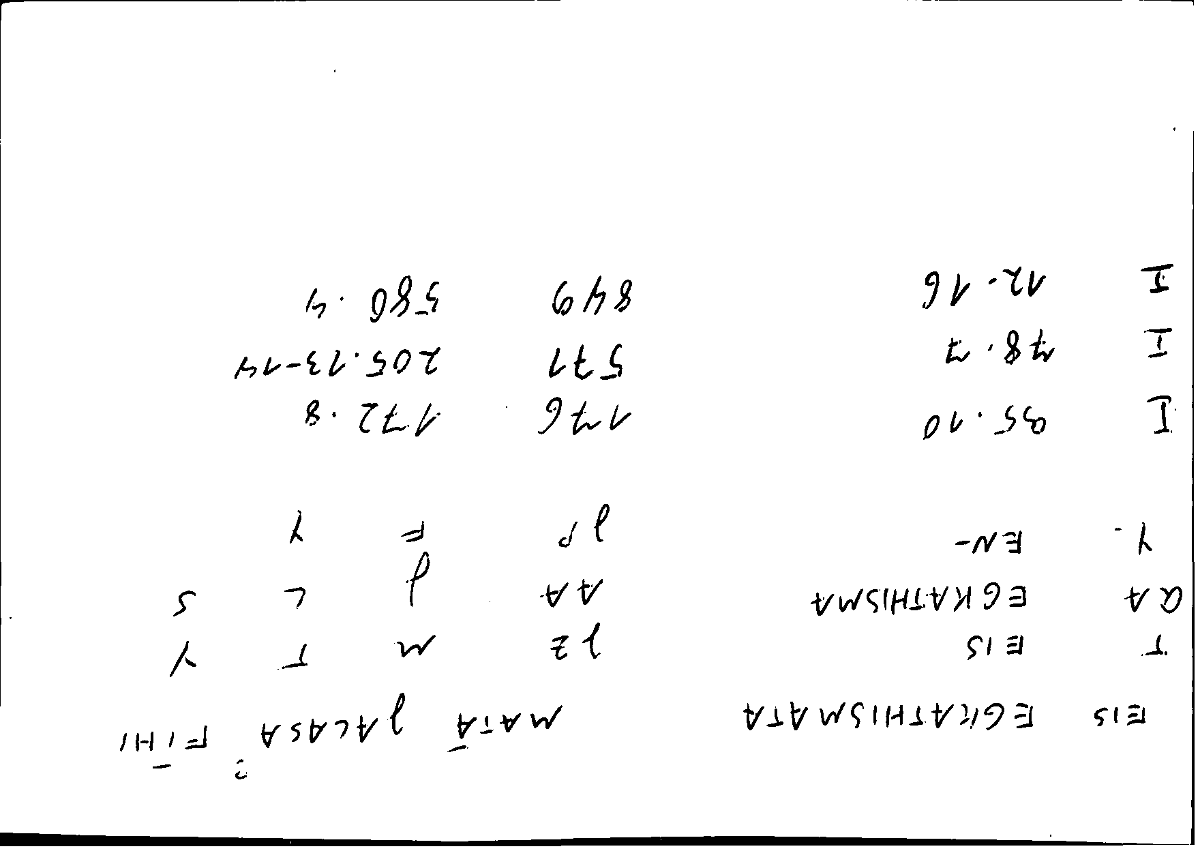 EIS EGKATHISMATA MATĀ JALASA FĪHI
T EIS JZ M T Y
QA EGKATHISMA AA J L S
Y. EN- JP F Y
I 95.10 176 172.8
I 78.7 571 205.13-14
I 12.16 849 580.4